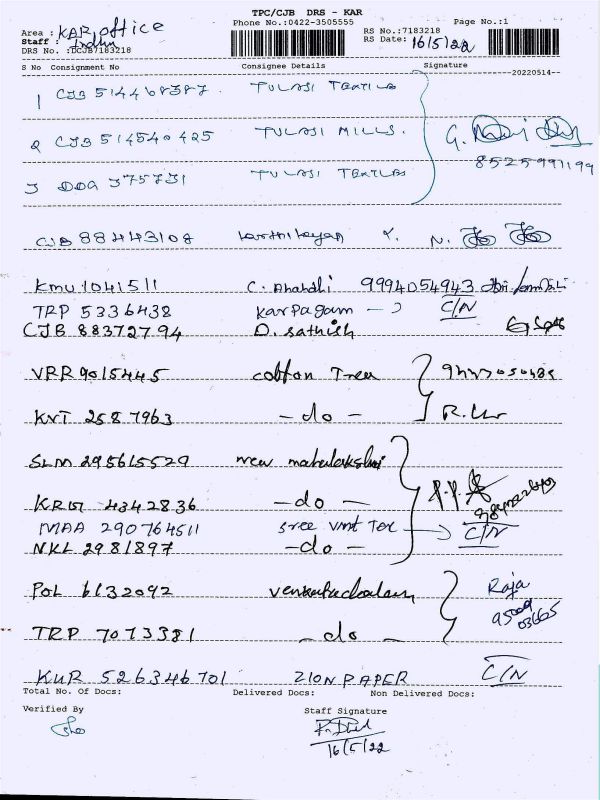 TPC/CJB DRS - KAR
Phone No.:0422-3505555 Page No.:1
Area : KAR office
Staff :
DRS No. :DCJB7183218
RS No.:7183218
RS Date: 16/5/22
S No Consignment No Consignee Details Signature
20220514
1 CJB 514468387 TULASI TEXTILES
2 CJB 514540425 TULASI MILLS.
8525991199
3 DDG 375731 TULASI TEXTILES
CJB 88443108 karthikeyan K. N.
KMU 1041511 C. 9994054943
TRP 5336438 Karpagam C/N
CJB 88372794 D. Sathish
VRR 9015445 cotton Tree
KNT 2587963 - do - R.
SLM 295615529 new mahalakshmi
KRN 4342836 - do -
MAA 290764511 Sree VMT Tex C/N
NKL 2981897 - do -
POL 6132092 venkatachalam Raja
95009 03665
TRP 7073381 - do -
KUR 526346701 ZION PAPER C/N
Total No. Of Docs: Delivered Docs: Non Delivered Docs:
Verified By Staff Signature
16/5/22